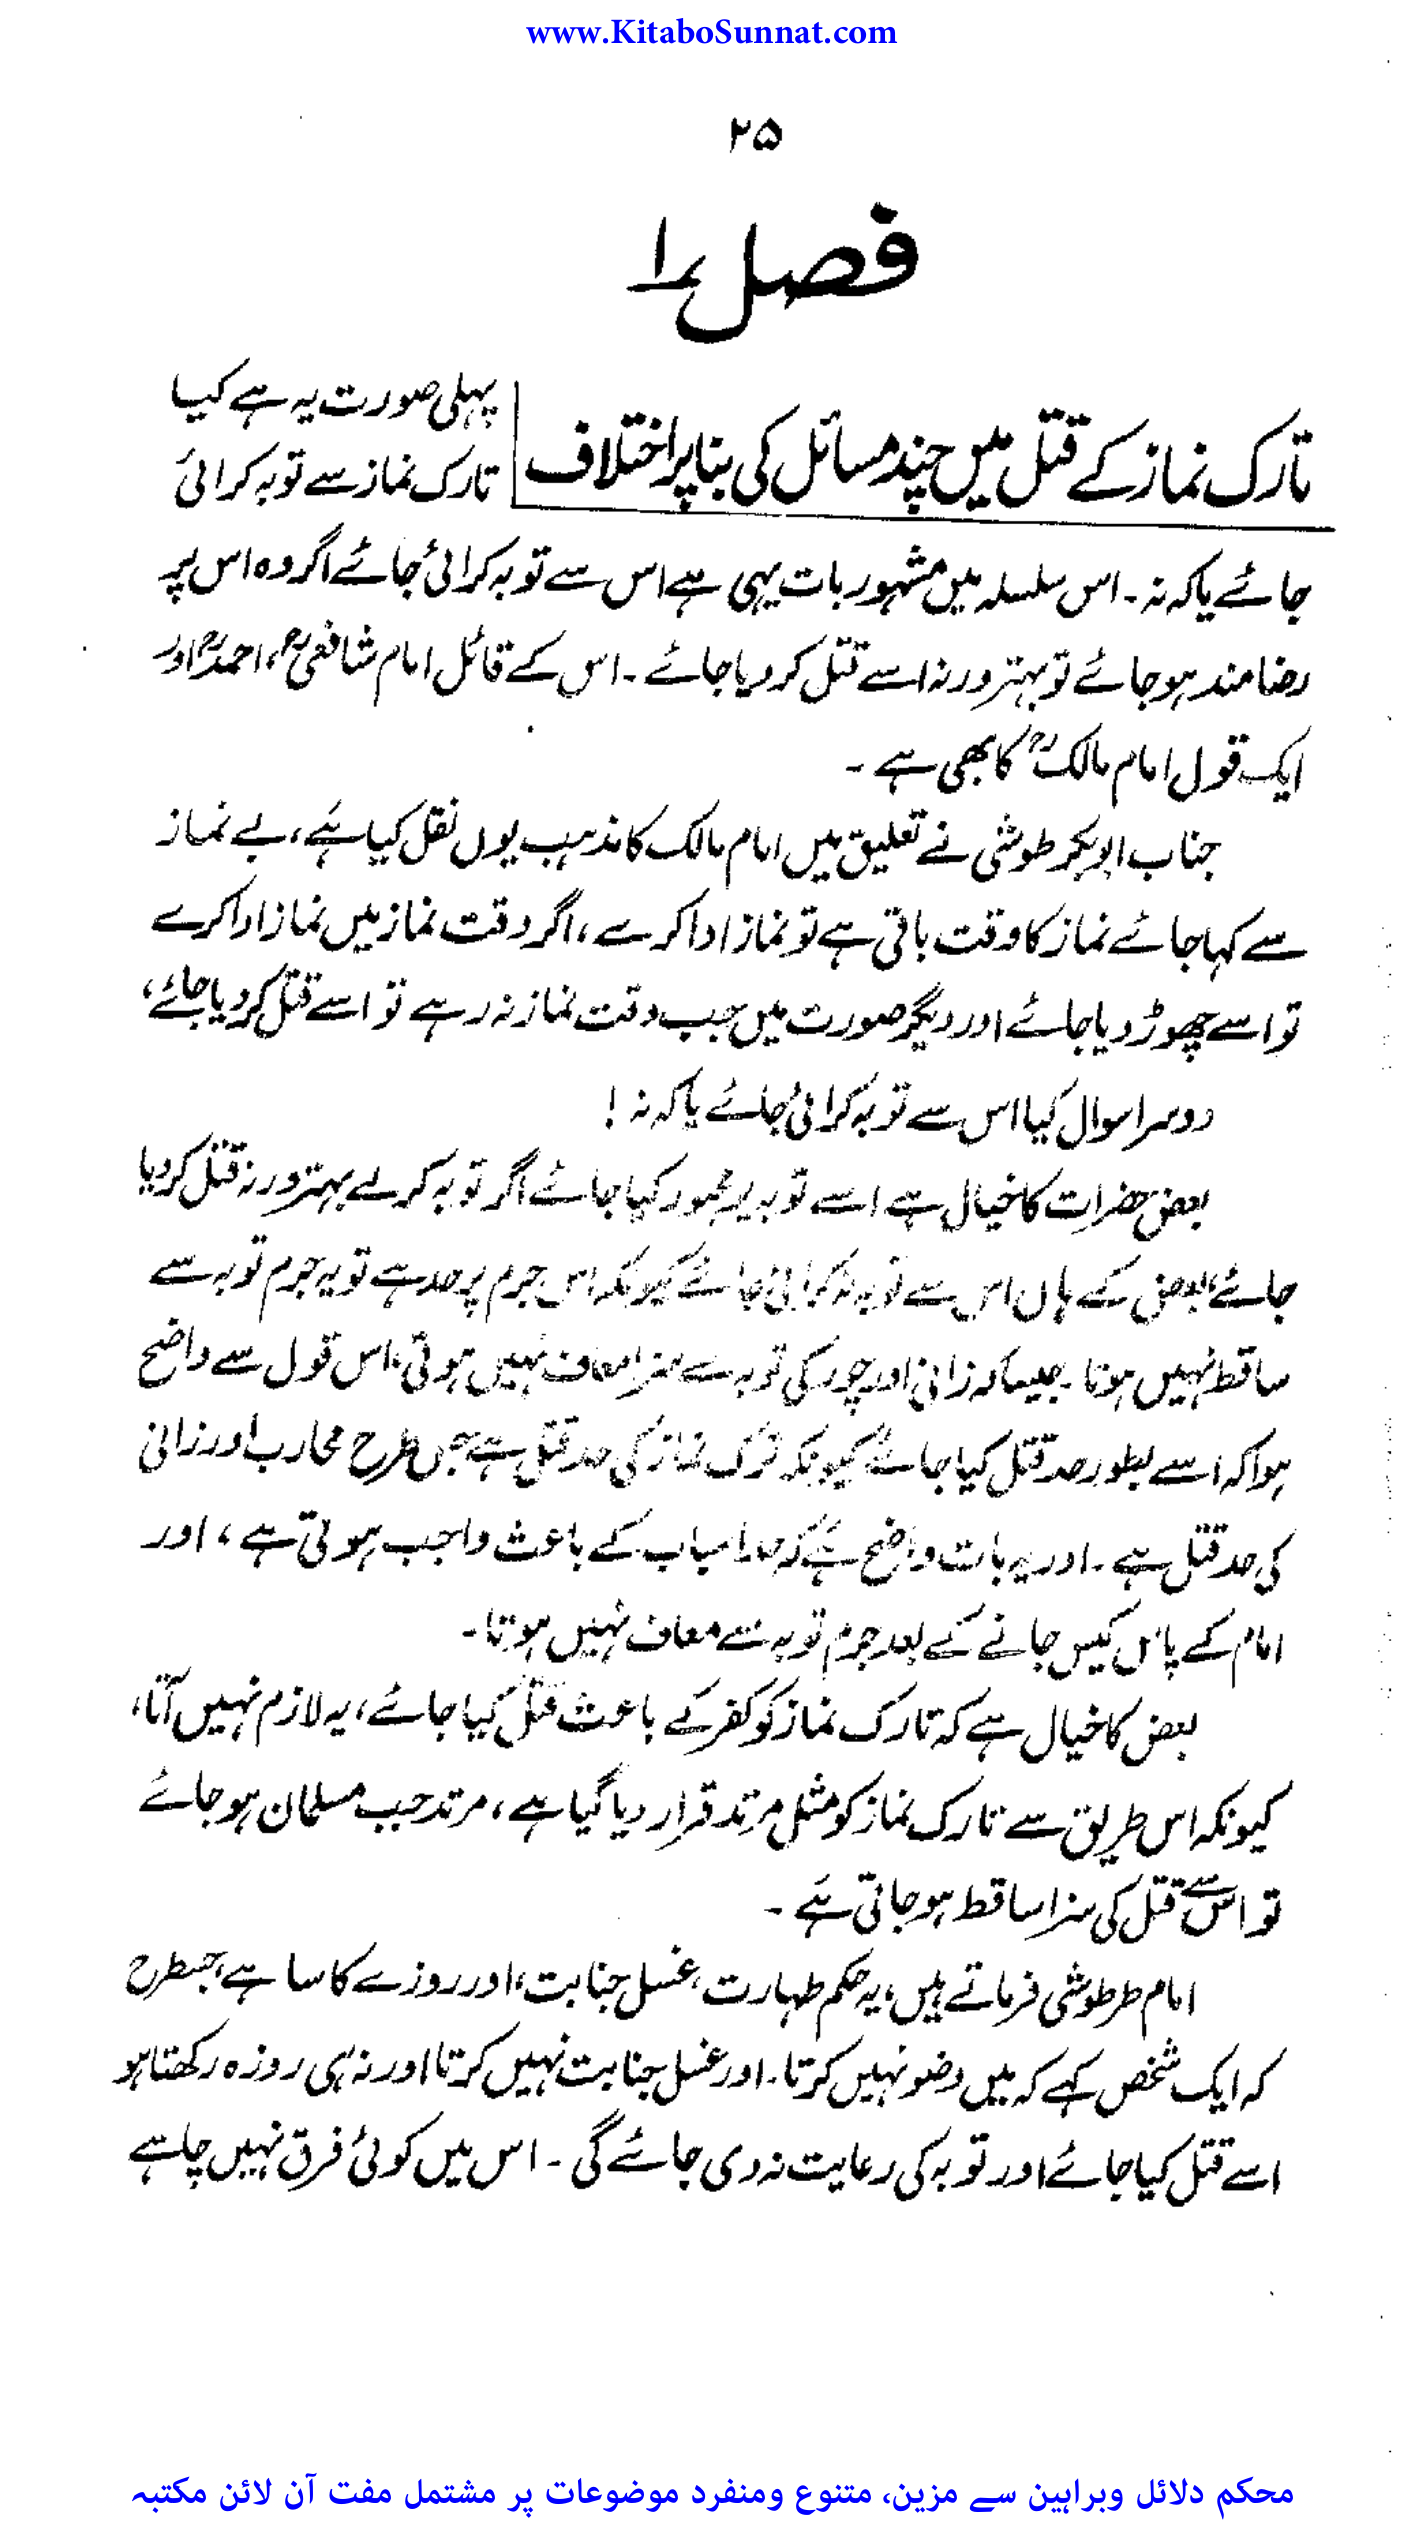 www.KitaboSunnat.com
۲۵
فصل ۱
تارک نماز کے قتل میں چند مسائل کی بنا پر اختلاف
پہلی صورت یہ ہے کیا
تارک نماز سے توبہ کرائی
جائے یا کہ نہ ۔ اس سلسلہ میں مشہور بات یہی ہے اس سے توبہ کرائی جائے اگر وہ اس پر
رضا مند ہو جائے تو بہتر ورنہ اسے قتل کر دیا جائے ۔ اس کے قائل امام شافعیؒ، احمدؒ اور
ایک قول امام مالکؒ کا بھی ہے ۔
جناب ابوبکر طوشی نے تعلیق میں امام مالک کا مذہب یوں نقل کیا ہے ، بے نماز
سے کہا جائے نماز کا وقت باقی ہے تو نماز ادا کرے ، اگر وقت نماز میں نماز ادا کرے
تو اسے چھوڑ دیا جائے اور دیگر صورت میں جب وقت نماز نہ رہے تو اسے قتل کر دیا جائے ،
دوسرا سوال کیا اس سے توبہ کرائی جائے یا کہ نہ !
بعض حضرات کا خیال ہے اسے توبہ پر مجبور کیا جائے اگر توبہ کر لے بہتر ورنہ قتل کر دیا
جائے، بعض کے ہاں اس سے توبہ نہ کرائی جائے کیونکہ اس جرم پر حد ہے تو یہ جرم توبہ سے
ساقط نہیں ہوتا ۔ جیسا کہ زانی اور چور کی توبہ سے سزا معاف نہیں ہوتی، اس قول سے واضح
ہوا کہ اسے بطور حد قتل کیا جائے کیونکہ ترک نماز کی حد قتل ہے جس طرح محارب اور زانی
کی حد قتل ہے ۔ اور یہ بات واضح ہے کہ حد اسباب کے باعث واجب ہوتی ہے ، اور
امام کے پاس کیس جانے کے بعد جرم توبہ سے معاف نہیں ہوتا ۔
بعض کا خیال ہے کہ تارک نماز کو کفر کے باعث قتل کیا جائے ، یہ لازم نہیں آتا ،
کیونکہ اس طریق سے تارک نماز کو مثل مرتد قرار دیا گیا ہے ، مرتد جب مسلمان ہو جائے
تو اس سے قتل کی سزا ساقط ہو جاتی ہے ۔
امام طرطوشی فرماتے ہیں، یہ حکم طہارت ، غسل جنابت ، اور روزے کا سا ہے ، جسطرح
کہ ایک شخص کہے کہ میں وضو نہیں کرتا ۔ اور غسل جنابت نہیں کرتا اور نہ ہی روزہ رکھتا ہو
اسے قتل کیا جائے اور توبہ کی رعایت نہ دی جائے گی ۔ اس میں کوئی فرق نہیں چاہے
محکم دلائل وبراہین سے مزین، متنوع ومنفرد موضوعات پر مشتمل مفت آن لائن مکتبہ